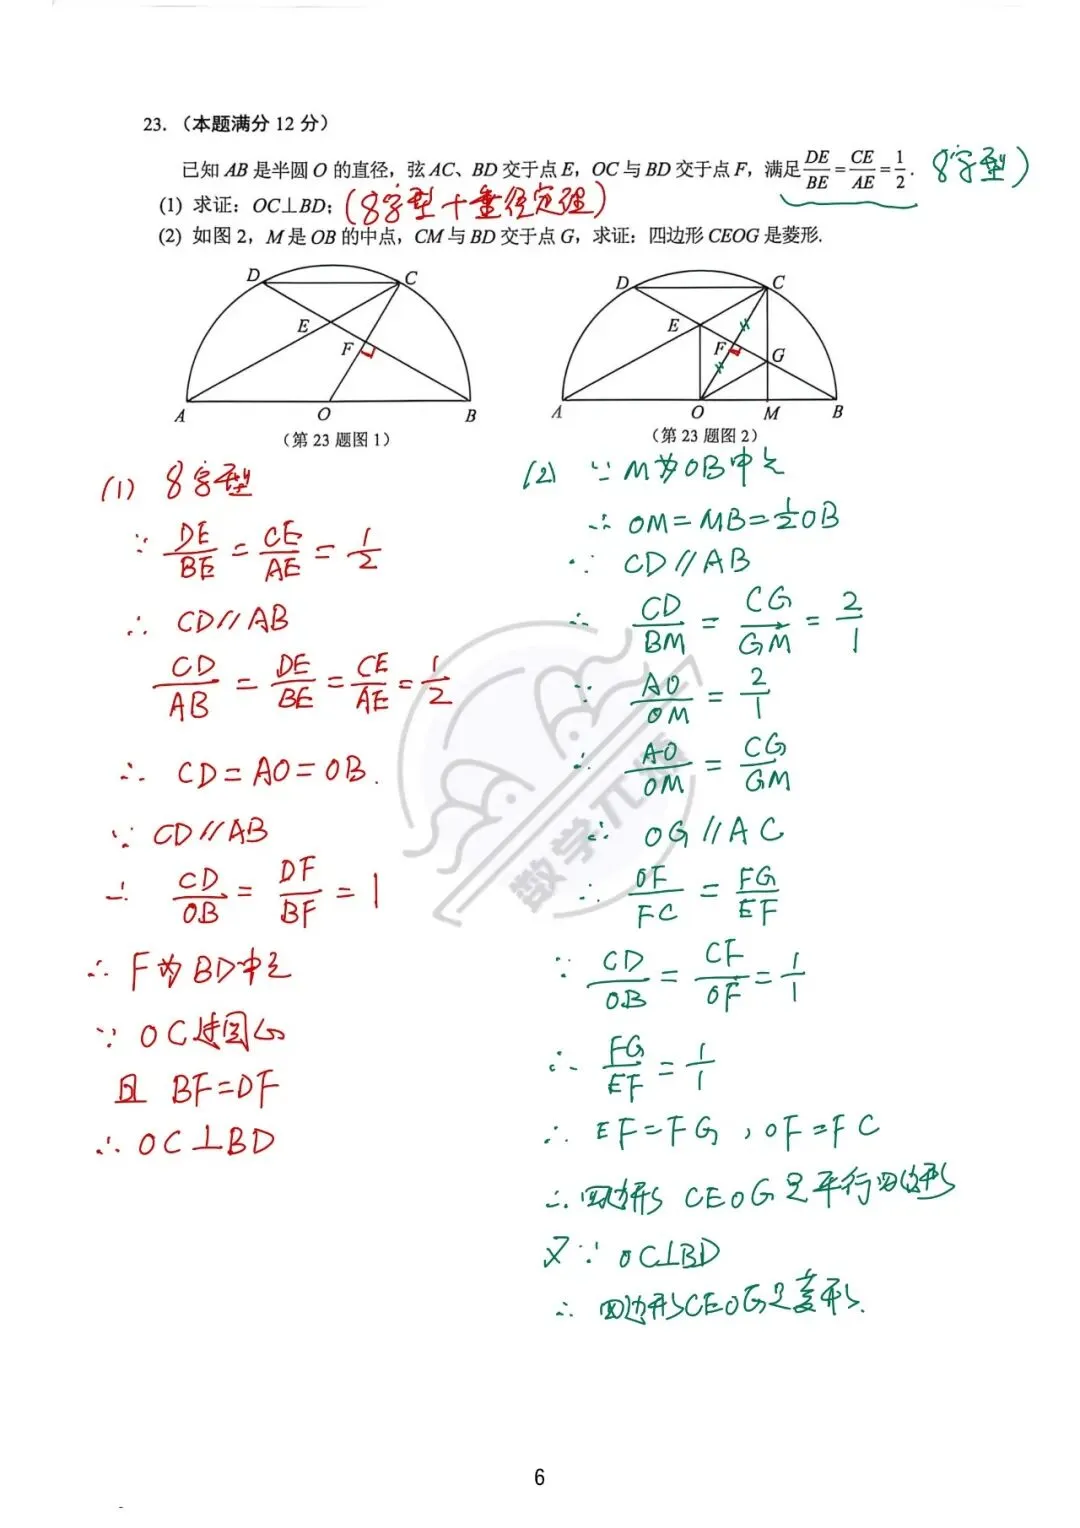 23. （本题满分 12 分）
已知 AB 是半圆 O 的直径，弦 AC、BD 交于点 E，OC 与 BD 交于点 F，满足 DE/BE = CE/AE = 1/2. 8字型)
(1) 求证：OC⊥BD; (8字型+垂径定理)
(2) 如图 2，M 是 OB 的中点，CM 与 BD 交于点 G，求证：四边形 CEOG 是菱形.
D C E F A O B
D C E F G A O M B
（第 23 题图 1）
（第 23 题图 2）
(1) 8字型
∵ DE/BE = CE/AE = 1/2
∴ CD//AB
CD/AB = DE/BE = CE/AE = 1/2
∴ CD=AO=OB.
∵ CD//AB
∴ CD/OB = DF/BF = 1
∴ F为BD中点
∵ OC过圆心
且 BF=DF
∴ OC⊥BD
(2) ∵ M为OB中点
∴ OM=MB=1/2OB
∵ CD//AB
∴ CD/BM = CG/GM = 2/1
∵ AO/OM = 2/1
∴ AO/OM = CG/GM
∴ OG//AC
∴ OF/FC = FG/EF
∵ CD/OB = CF/OF = 1/1
∴ FG/EF = 1/1
∴ EF=FG，OF=FC
∴ 四边形 CEOG是平行四边形
又∵ OC⊥BD
∴ 四边形CEOG是菱形.
数学元
6